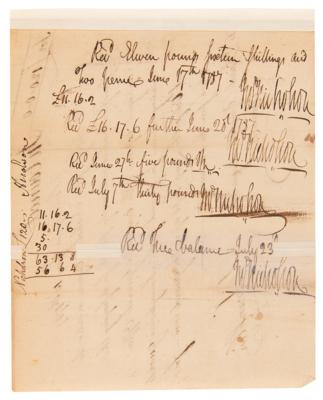 Recd Eleven pounds Sixteen Shillings and
two pence June 17th 1787
£11.16.2
Jno Nicholson
Recd £16.17.6 further June 20th 1787
Jno Nicholson
Recd June 27th five pounds
Recd July 7th thirty pounds Jno Nicholson
11.16.2
16.17.6
5
30
63.13.8
56 6 4
Recd the balance July 23d
Jno Nicholson
Nicholson